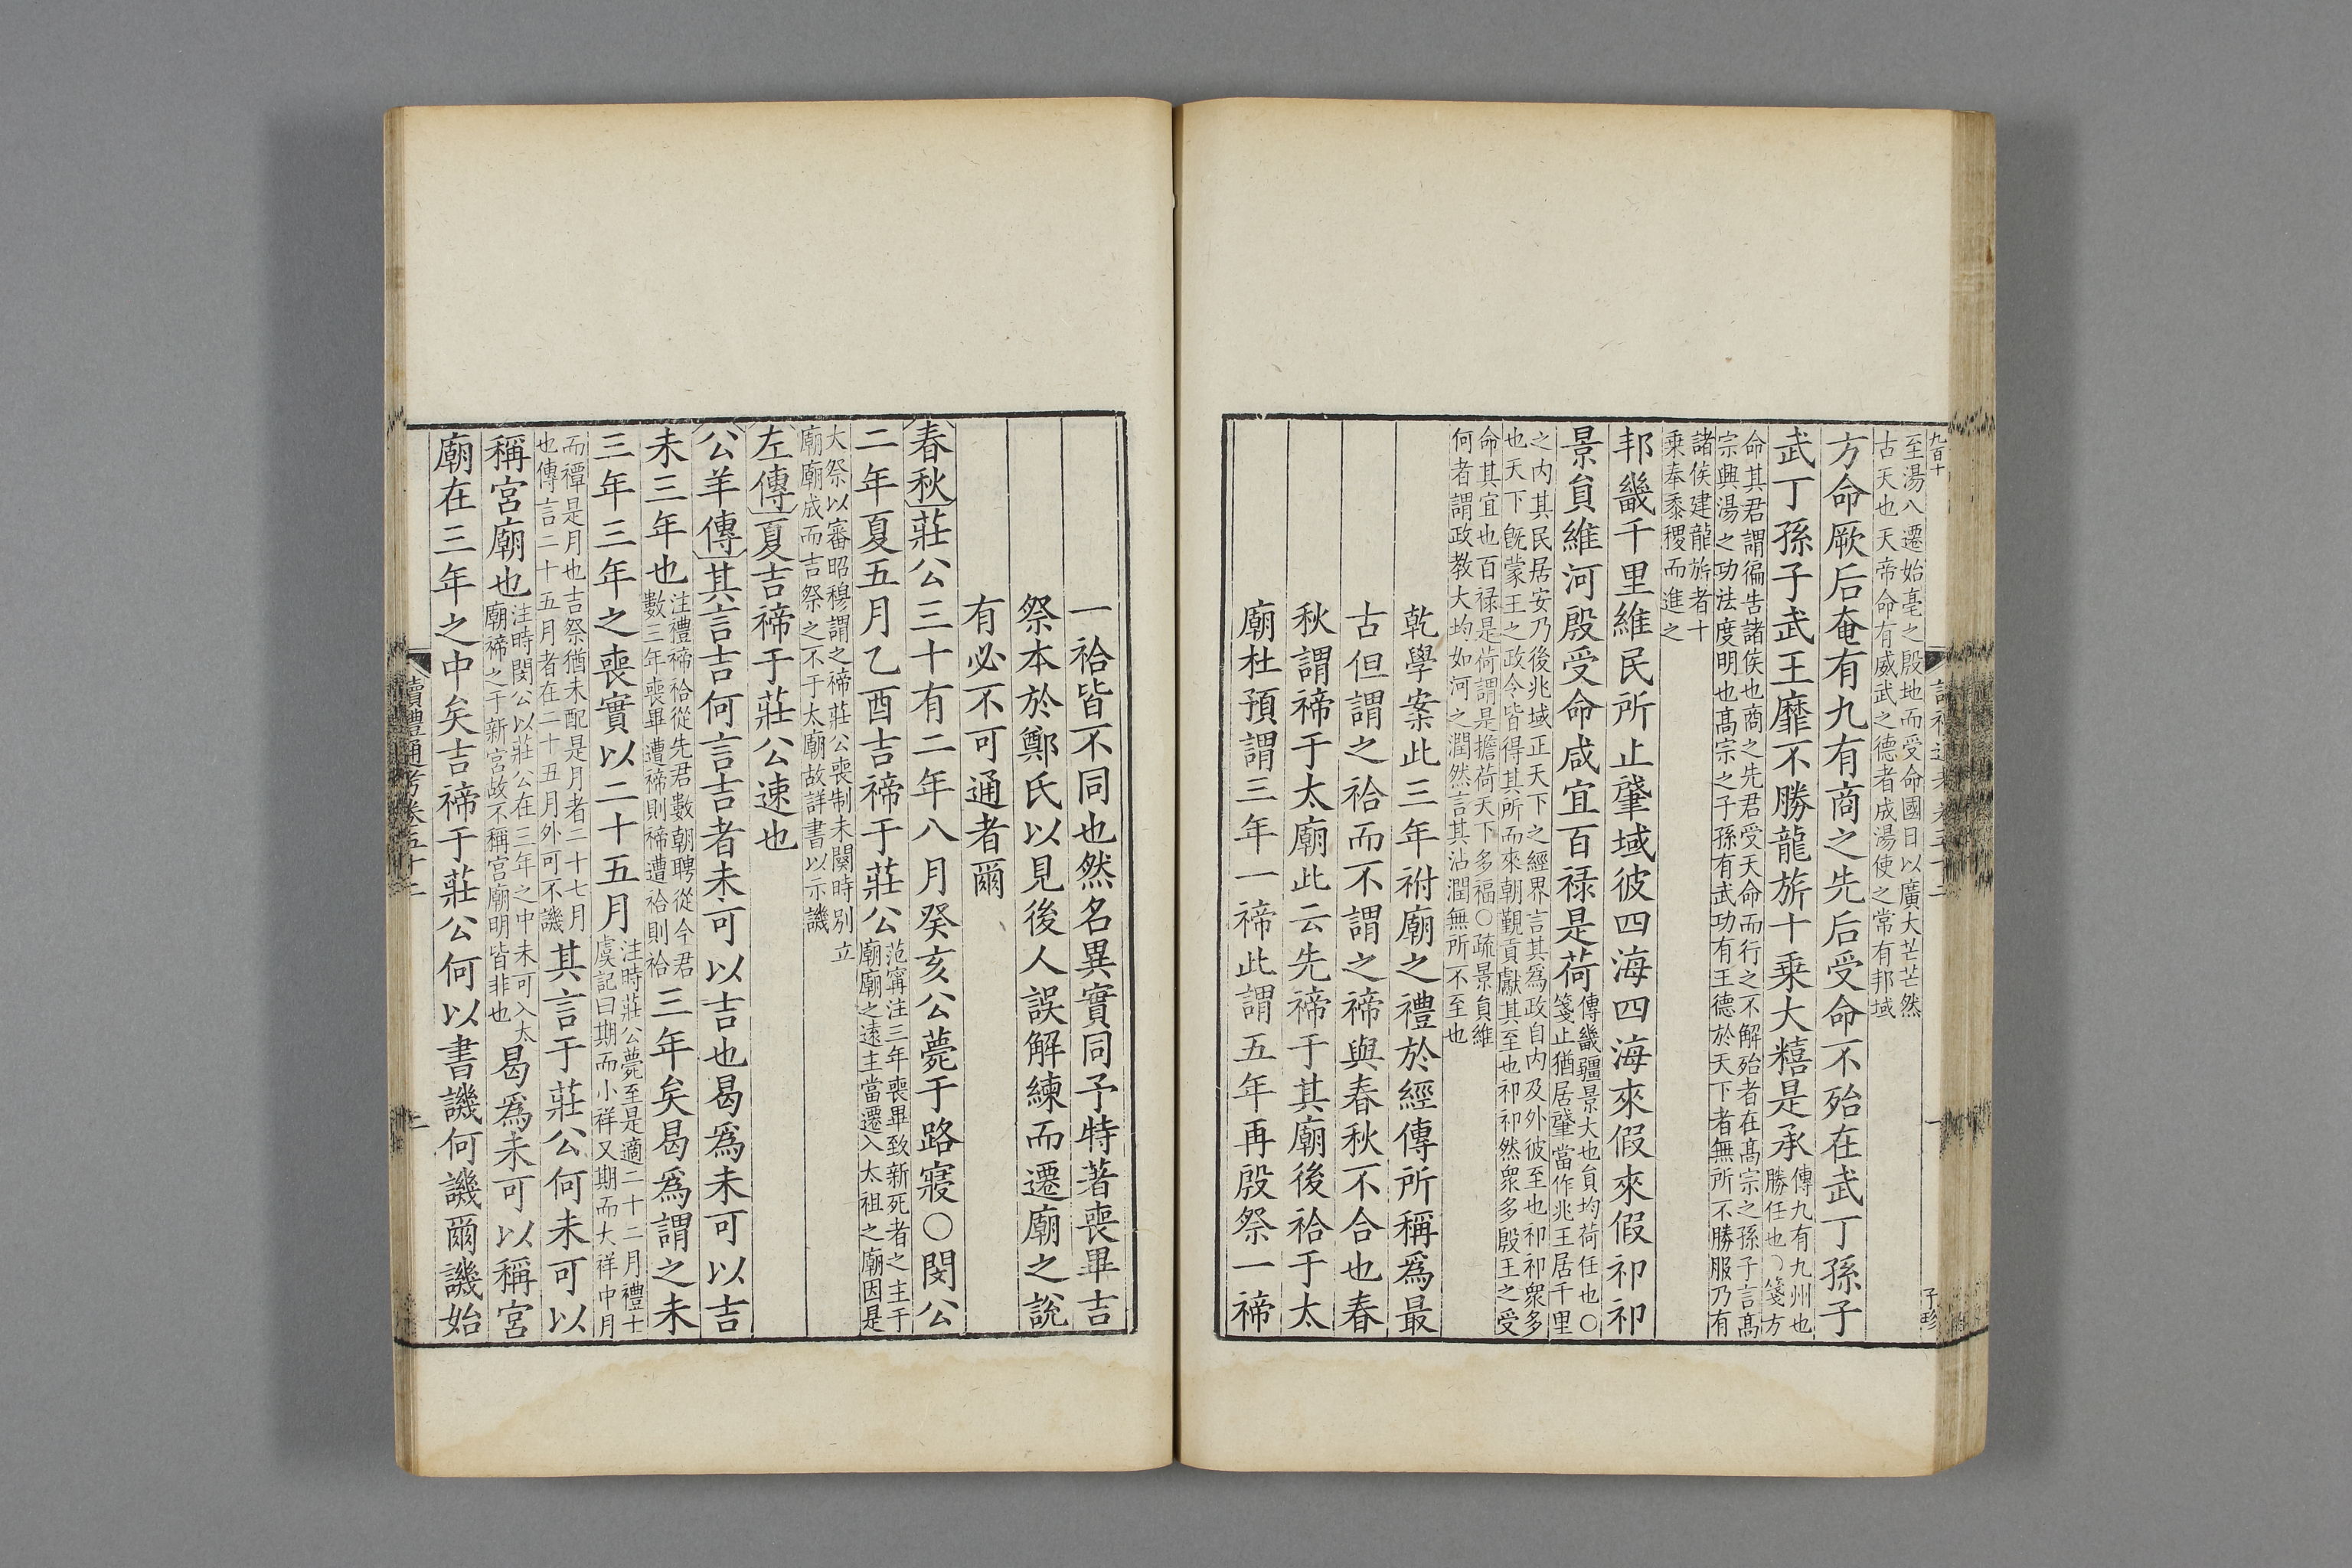 九百十
至湯八遷始亳之殷地而受命國日以廣大芒芒然
古天也天帝命有威武之德者成湯使之常有邦域
方命厥后奄有九有商之先后受命不殆在武丁孫子
武丁孫子武王靡不勝龍旂十乘大糦是承
傳九有九州也
勝任也○箋方
命其君謂徧告諸侯也商之先君受天命而行之不解殆者在髙宗之孫子言髙
宗興湯之功法度明也髙宗之子孫有武功有王德於天下者無所不勝服乃有
諸侯建龍旂者十
乘奉黍稷而進之
邦畿千里維民所止肈域彼四海四海來假來假祁祁
景負維河殷受命咸宜百禄是荷
傳畿疆景大也負均荷任也○
箋止猶居肈當作兆王居千里
之内其民居安乃後兆域正天下之經界言其爲政自内及外彼至也祁祁衆多
也天下旣蒙王之政令皆得其所而來朝覲貢獻其至也祁祁然衆多殷王之受
命其宜也百禄是荷謂是擔荷天下多福○疏景負維
何者謂政教大均如河之潤然言其沾潤無所不至也
乾學案此三年祔廟之禮於經傳所稱爲最
古但謂之祫而不謂之禘與春秋不合也春
秋謂禘于太廟此云先禘于其廟後祫于太
廟杜預謂三年一禘此謂五年再殷祭一禘
一祫皆不同也然名異實同予特著喪畢吉
祭本於鄭氏以見後人誤解練而遷廟之說
有必不可通者爾
春秋莊公三十有二年八月癸亥公薨于路寢○閔公
二年夏五月乙酉吉禘于莊公
范甯注三年喪畢致新死者之主于
廟廟之遠主當遷入太祖之廟因是
大祭以審昭穆謂之禘莊公喪制未闋時别立
廟廟成而吉祭之不于太廟故詳書以示譏
左傳夏吉禘于莊公速也
公羊傳其言吉何言吉者未可以吉也曷爲未可以吉
未三年也
注禮禘祫從先君數朝聘從今君
數三年喪畢遭禘則禘遭祫則祫
三年矣曷爲謂之未
三年三年之喪實以二十五月
注時莊公薨至是適二十二月禮士
虞記曰期而小祥又期而大祥中月
而禫是月也吉祭猶未配是月者二十七月
也傳言二十五月者在二十五月外可不譏
其言于莊公何未可以
稱宮廟也
注時閔公以莊公在三年之中未可入太
廟禘之于新宮故不稱宮廟明皆非也
曷爲未可以稱宮
廟在三年之中矣吉禘于莊公何以書譏何譏爾譏始
讀禮通考卷五十二